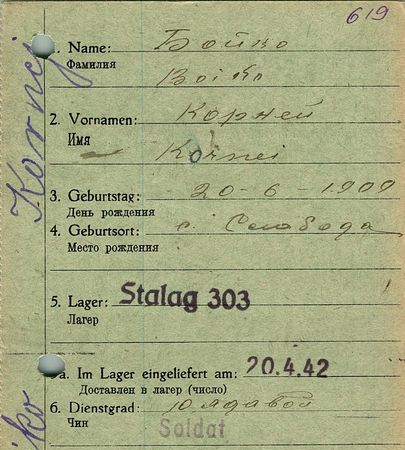 619
1. Name: Бойко
Фамилия
Boiko
2. Vornamen: Корней
Имя
Kornei
3. Geburtstag: 20-6-1909
День рождения
4. Geburtsort: с. Слобода
Место рождения
5. Lager: Stalag 303
Лагер
5a. Im Lager eingeliefert am: 20.4.42
Доставлен в лагер (число)
6. Dienstgrad:
Чин
Soldat
Kornej
ko